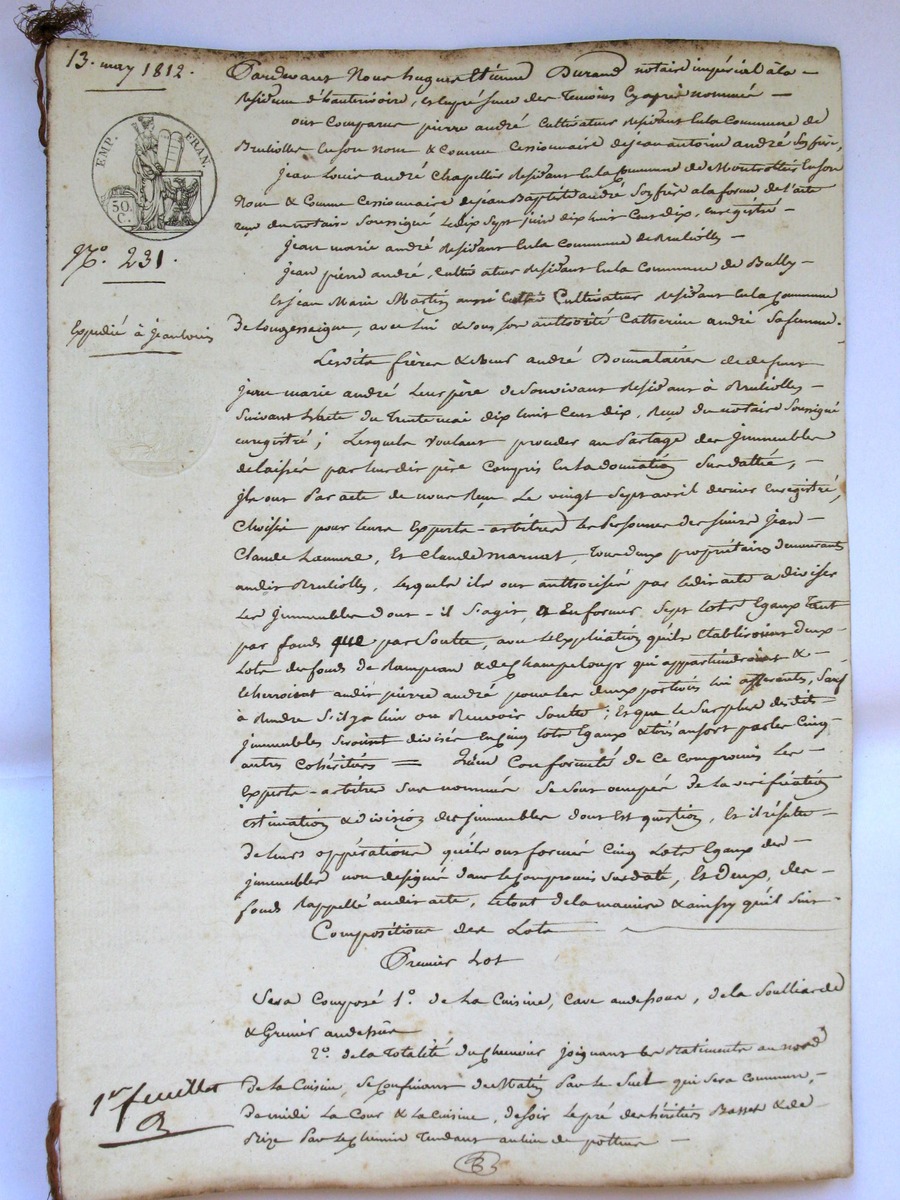 13. may 1812.
EMP. FRAN.
50. C.
N.° 231.
Expédié à jean louis
Pardevant Nous hugues Etienne Durand notaire impérial à la
Residence d'hauterivoire, et en présence des Temoins cy après nommés
ont Comparus pierre andré Cultivateur Residant en la Commune de
Brullioles en son nom & comme Cessionnaire de jean antoine andré son frère,
jean Louis andré Chapellier Residant en la Commune de Montrottier en son
Nom & Comme Cessionnaire de jean Baptiste andré son frère a la forme de l'acte
reçu du notaire Soussigné le dix sept juin dix huit Cent dix, enregistré
jean marie andré Residant en la Commune de Brullioles
jean pierre andré, cultivateur Residant en la Commune de Bully
Et jean Marie Martin aussi Cultivateur Residant en la Commune
De Longessaigne, avec lui & sous son authorité Catherine andré sa femme.
Lesdits frères & sœur andré Donnataires de defunt
jean marie andré Leur père de son vivant Residant à Brullioles
Suivant l'acte du Trente mai dix huit Cent dix, Reçu du notaire Soussigné
enregistré ; Lesquels voulant proceder au Partage des Immeubles
delaissés par leurdit père Compris en la donnation Susdattée,
ils ont Par acte de nous Reçu Le vingt Sept avril dernier enregistré,
Choisis pour leurs Experts-arbitres les Personnes des sieurs Jean
Claude, Et Claude, Tous deux propriétaires demeurants
audit Brullioles, Lesquels ils ont authorisés par ledit acte a diviser
Les Immeubles dont-il S'agit, & En former Sept lots Egaux Tant
par fonds que par Soutte, avec l'Explication qu'ils Etabliroient deux
Lots des fonds de & de Champeloup qui appartiendroient &
echerroient audit pierre andré pour les deux portions lui afferantes, Sauf
à Rendre S'il y a lieu ou Recevoir Soutte ; Et que le Surplus desdits
jmmeubles Seroient divisés En Cinq lots Egaux & tirés au sort par les Cinq
autres Cohéritiers = Qu'en Conformité de ce Compromis Les
Experts-arbitres Sus nommés Se sont occupés de la verification
estimation & division des jmmeubles dont Est question, Et il résulte
De leurs oppérations qu'ils ont formés Cinq Lots Egaux des
jmmeubles non designés dans le Compromis Susdaté, Et deux, des
fonds Rappellé audit acte, le tout de la manière & ainsy qu'il Suit
Compositions des Lots
Premier Lot
Sera Composé 1°. de La Cuisine, Cave au dessous, de la Soulliarde
& Grenier au dessus
2°. de la Totalité du Chenevier joignant les Batiments au nord
De la Cuisine, Se Confinant de Matin Par le Suel qui Sera Commun,
De midi La Cour & la Cuisine, de soir Le pré des héritiers Basset & de
Bize Par le Chemin Tendant au lieu de
1er feuillet